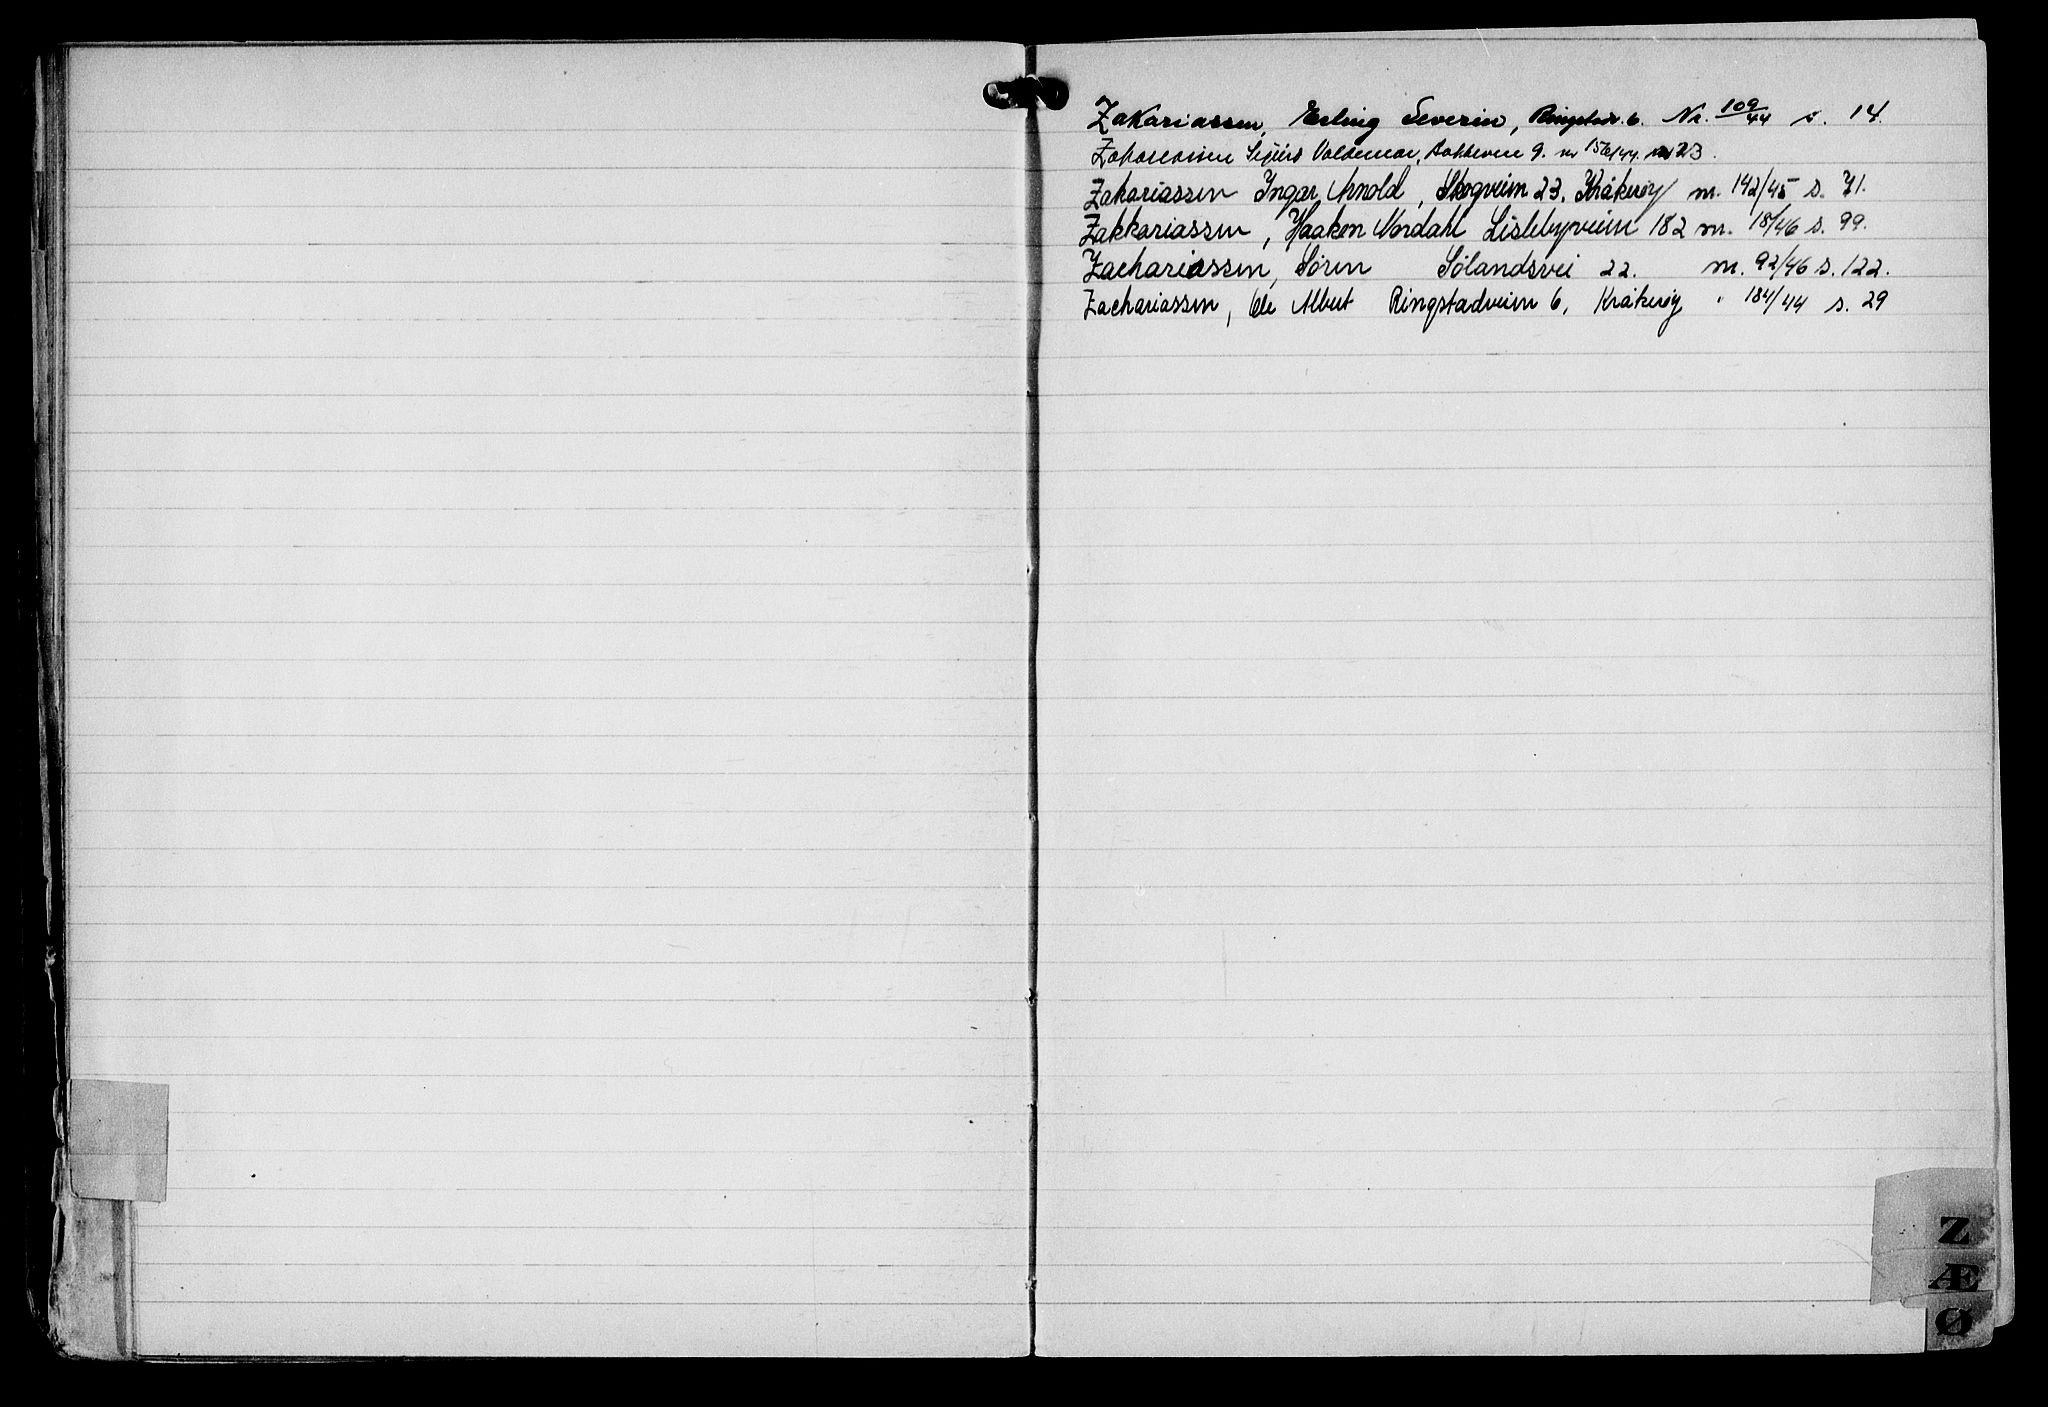 Zakariassen, Erling Severin, Ringstadv. 6. Nr. 109/44 s. 14.
Zakariassen Sigurd Valdemar, 9. nr 156/44. 23.
Zakariassen Ingar Arnold, Skogveien 23. Kråkerøy nr. 142/45 s. 71.
Zakkariassen, Haakon Nordahl Lislebyveien 182 nr. 18/46 s. 99.
Zachariassen, Søren Sølandsvei 22. nr. 92/46 s. 122.
Zachariassen, Ole Albert Ringstadveien 6, Kråkerøy " 184/44 s. 29
Z
Æ
Ø